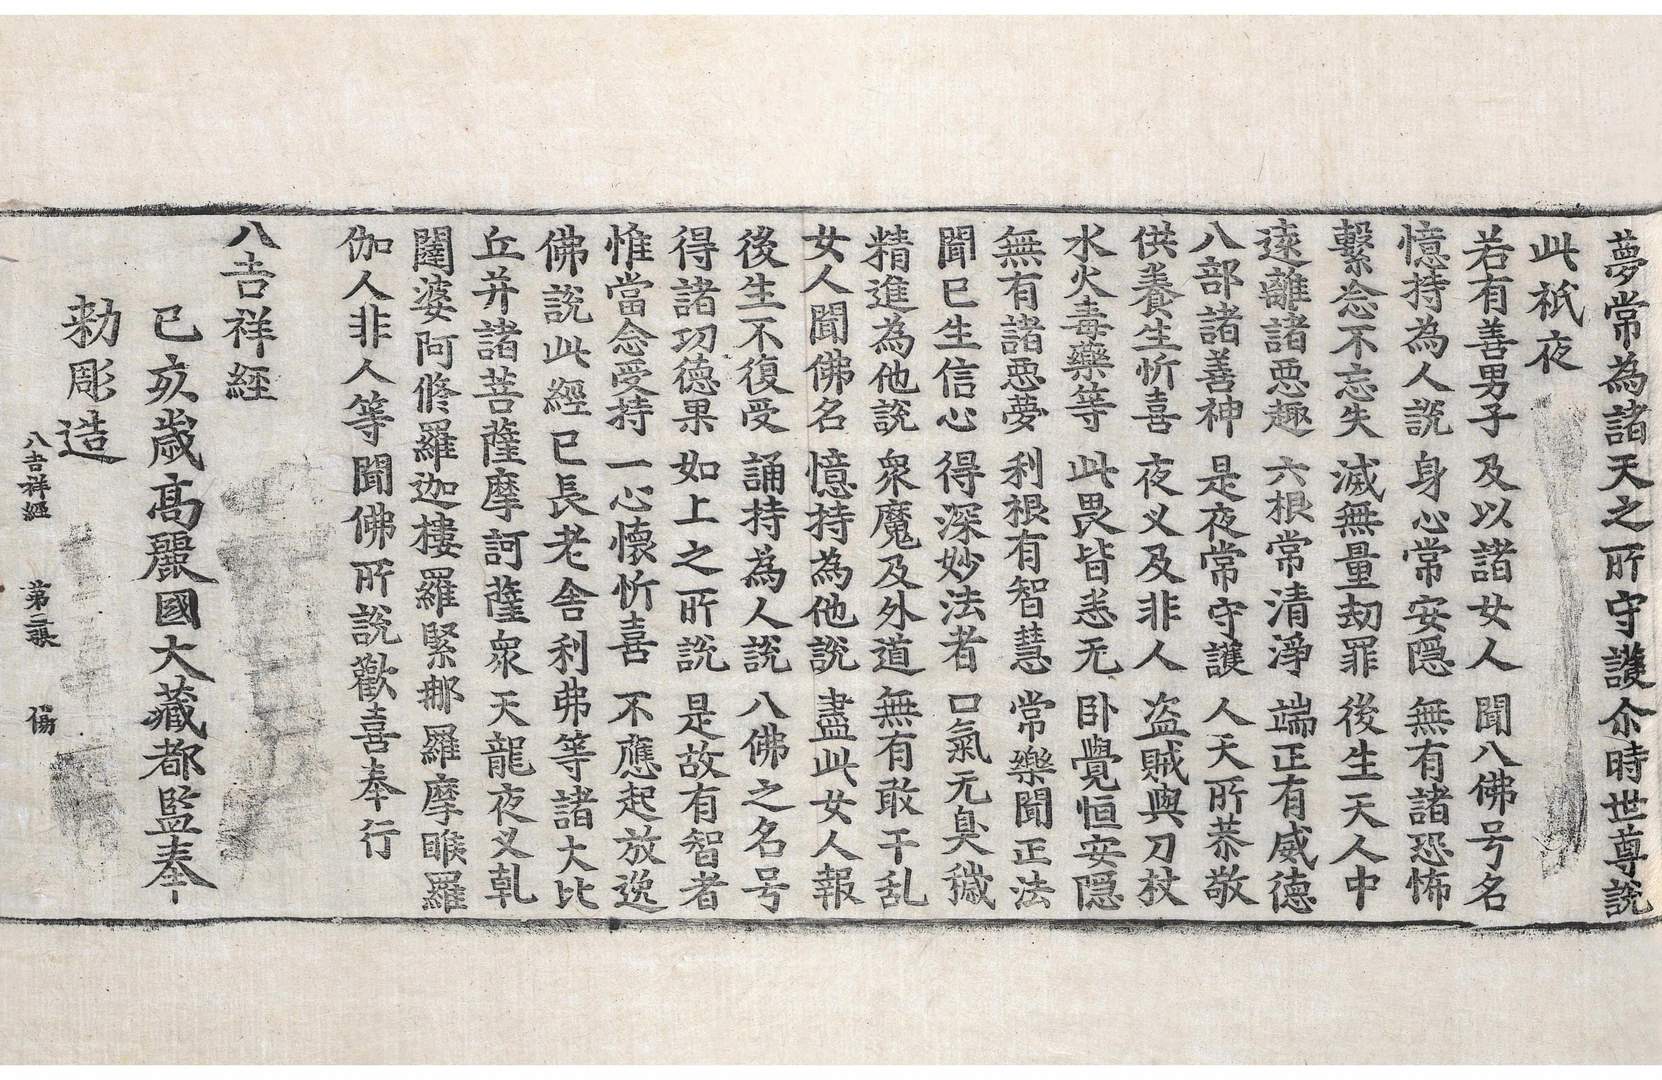 夢常為諸天之所守護尒時世尊說
此祇夜
若有善男子 及以諸女人 聞八佛号名
憶持為人說 身心常安隱 無有諸恐怖
繫念不忘失 滅無量劫罪 後生天人中
遠離諸惡趣 六根常清淨 端正有威德
八部諸善神 是夜常守護 人天所恭敬
供養生忻喜 夜义及非人 盗賊與刀杖
水火毒藥等 此畏皆悉无 卧覺恒安隱
無有諸惡夢 利根有智慧 常樂聞正法
聞已生信心 得深妙法者 口氣无臭穢
精進為他說 衆魔及外道 無有敢干乱
女人聞佛名 憶持為他說 盡此女人報
後生不復受 誦持為人說 八佛之名号
得諸功德果 如上之所說 是故有智者
惟當念受持 一心懷忻喜 不應起放逸
佛說此經已長老舍利弗等諸大比
丘并諸菩薩摩訶薩衆天龍夜义乹
闥婆阿脩羅迦樓羅緊那羅摩睺羅
伽人非人等聞佛所說歡喜奉行
八吉祥經
己亥歲高麗國大藏都監奉
勑彫造
八吉祥經 第三張 傷